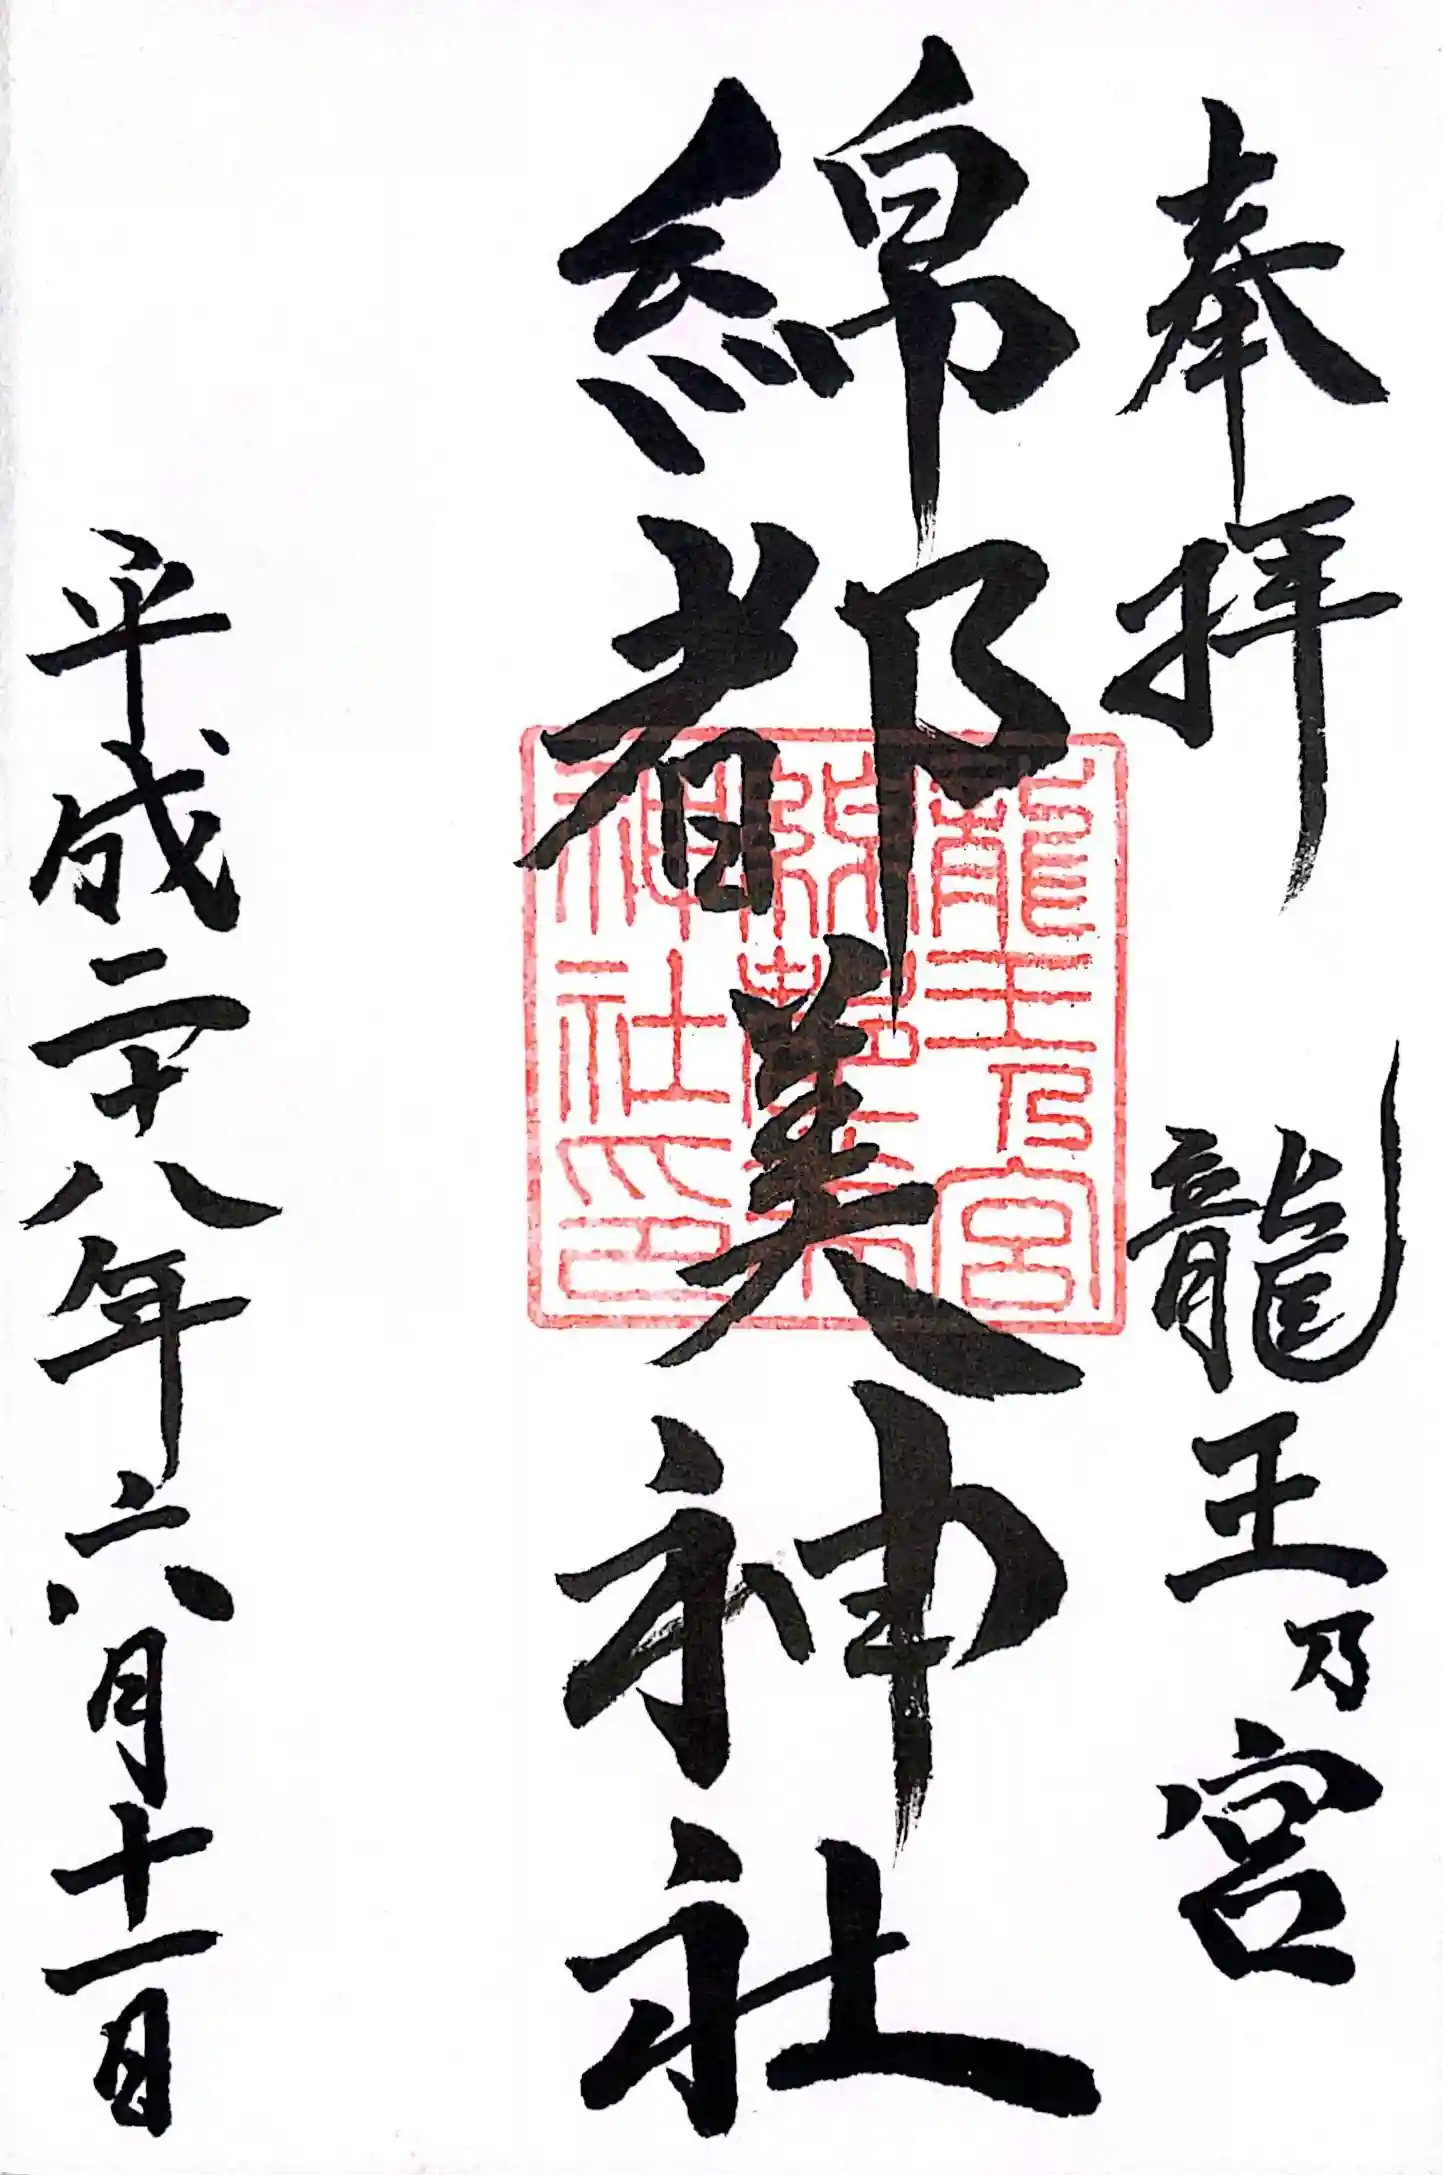 奉拝 龍王乃宮
綿都美神社
平成二十八年六月十一日
龍王乃宮
綿都美
神社印